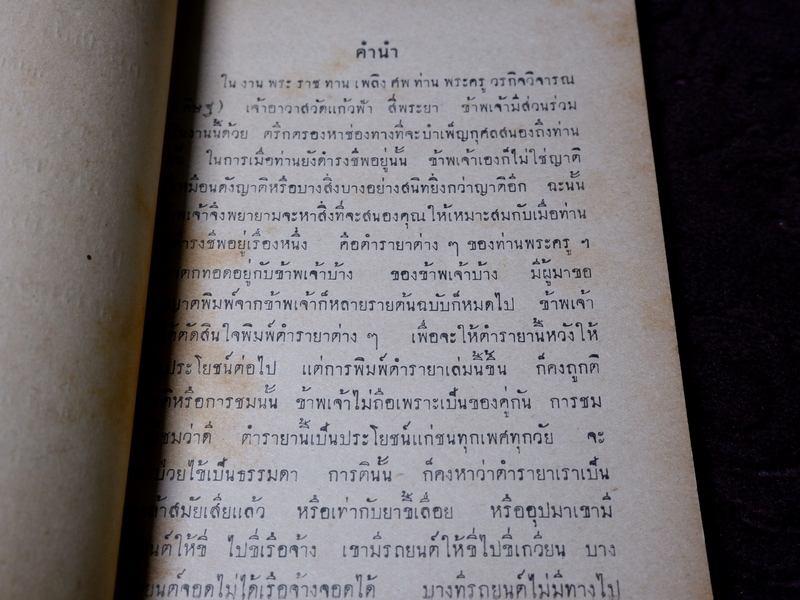 คำนำ
ใน งาน พระ ราช ทาน เพลิง ศพ ท่าน พระครู วรกิจวิจารณ
เจ้าอาวาสวัดแก้วฟ้า สี่พระยา ข้าพเจ้ามีส่วนร่วม
งานนี้ด้วย ตรึกตรองหาช่องทางที่จะบำเพ็ญกุศลสนองถึงท่าน
ในการเมื่อท่านยังดำรงชีพอยู่นั้น ข้าพเจ้าเองก็ไม่ใช่ญาติ
เหมือนดังญาติหรือบางสิ่งบางอย่างสนิทยิ่งกว่าญาติอีก ฉะนั้น
เจ้าจึงพยายามจะหาสิ่งที่จะสนองคุณให้เหมาะสมกับเมื่อท่าน
ดำรงชีพอยู่เรื่องหนึ่ง คือตำรายาต่าง ๆ ของท่านพระครู ฯ
ตกทอดอยู่กับข้าพเจ้าบ้าง ของข้าพเจ้าบ้าง มีผู้มาขอ
ญาตพิมพ์จากข้าพเจ้าก็หลายรายต้นฉบับก็หมดไป ข้าพเจ้า
ตัดสินใจพิมพ์ตำรายาต่าง ๆ เพื่อจะให้ตำรายานี้หวังให้
ประโยชน์ต่อไป แต่การพิมพ์ตำรายาเล่มนี้ขึ้น ก็คงถูกติ
ติหรือการชมนั้น ข้าพเจ้าไม่ถือเพราะเป็นของคู่กัน การชม
ชมว่าดี ตำรายานี้เป็นประโยชน์แก่ชนทุกเพศทุกวัย จะ
ป่วยไข้เป็นธรรมดา การตินั้น ก็คงหาว่าตำรายาเราเป็น
ล้าสมัยเสียแล้ว หรือเท่ากับยาขี้เลื่อย หรืออุปมาเขามี
ยนต์ให้ขี่ ไปขี่เรือจ้าง เขามีรถยนต์ให้ขี่ไปขี่เกวียน บาง
ยนต์จอดไม่ได้เรือจ้างจอดได้ บางที่รถยนต์ไม่มีทางไป